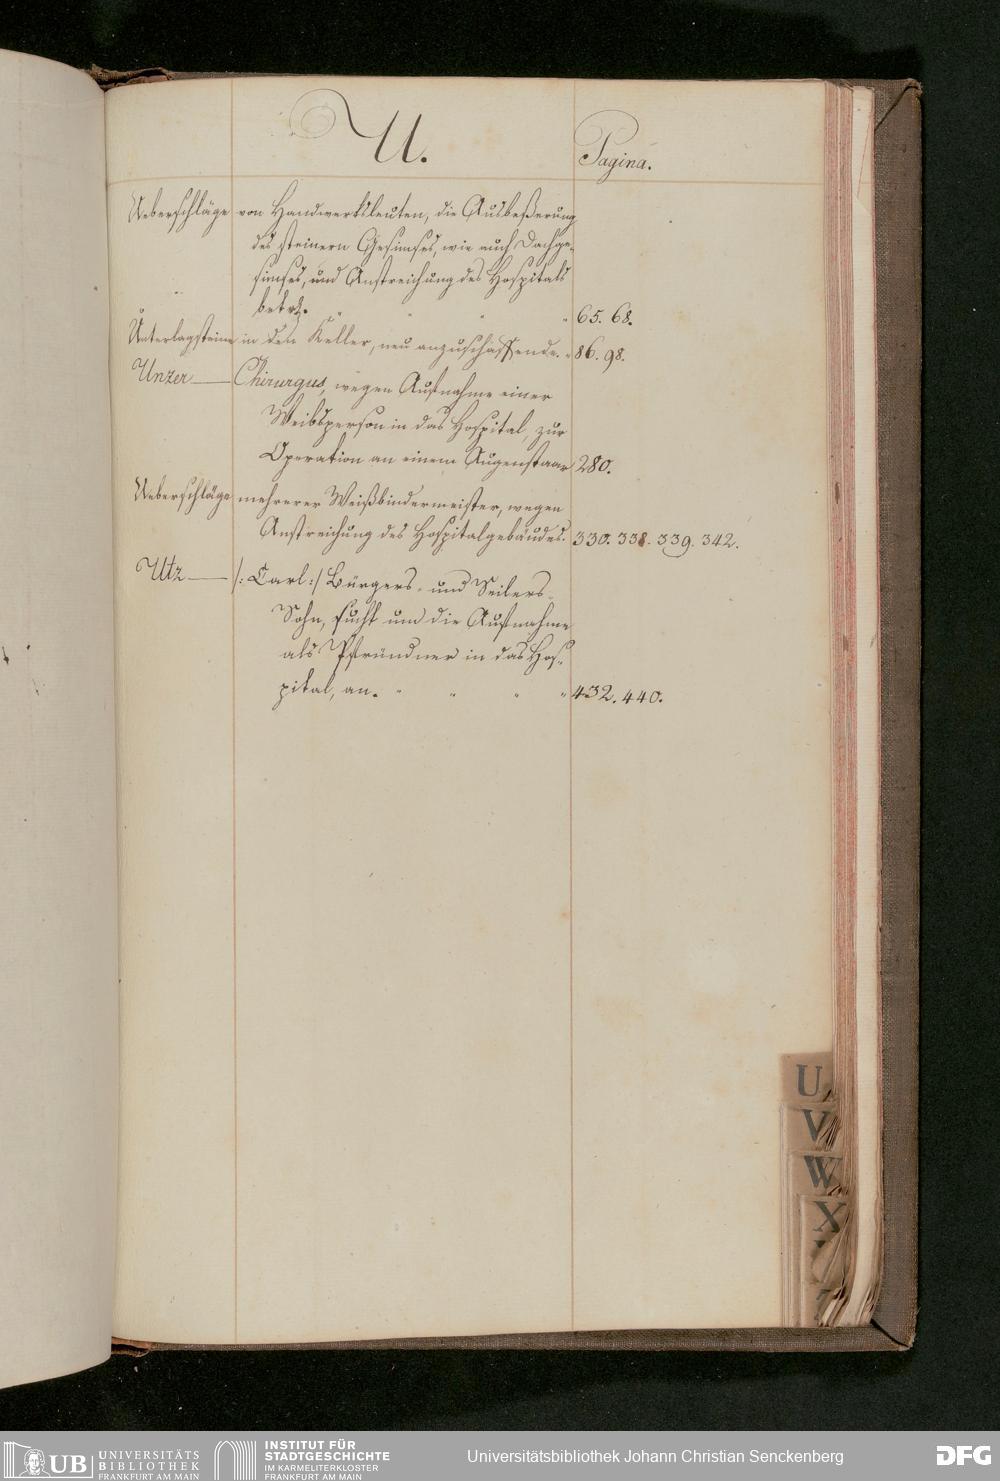 U.
Pagina.
Ueberschläge von Handwerksleuten, die Ausbeßerung
des steinern Gesimses, wie auch Dachge-
simses, und Anstreichung des Hospitals
betr. " " " 65. 68.
Unterlagsteine in den Keller, neu anzuschaffende. " 86. 98.
Unzer — Chirurgus, wegen Aufnahme einer
Weibsperson in das Hospital, zur
Operation an einem Augenstaar 280.
Ueberschläge mehrerer Weißbindermeister, wegen
Anstreichung des Hospitalgebäudes. 330. 338. 339. 342.
Utz — /: Carl :/ Bürgers- und Seilers-
Sohn, sucht um die Aufnahme
als Pfründner in das Hos-
pital, an. " " " " 432. 440.
U
V
W
X
UB UNIVERSITÄTS
BIBLIOTHEK
FRANKFURT AM MAIN
INSTITUT FÜR
STADTGESCHICHTE
IM KARMELITERKLOSTER
FRANKFURT AM MAIN
Universitätsbibliothek Johann Christian Senckenberg
DFG